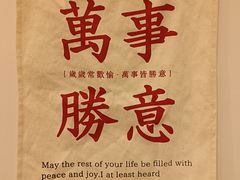 萬事
[歲歲常歡愉·萬事皆勝意]
勝意
May the rest of your life be filled with
peace and joy.I at least heard